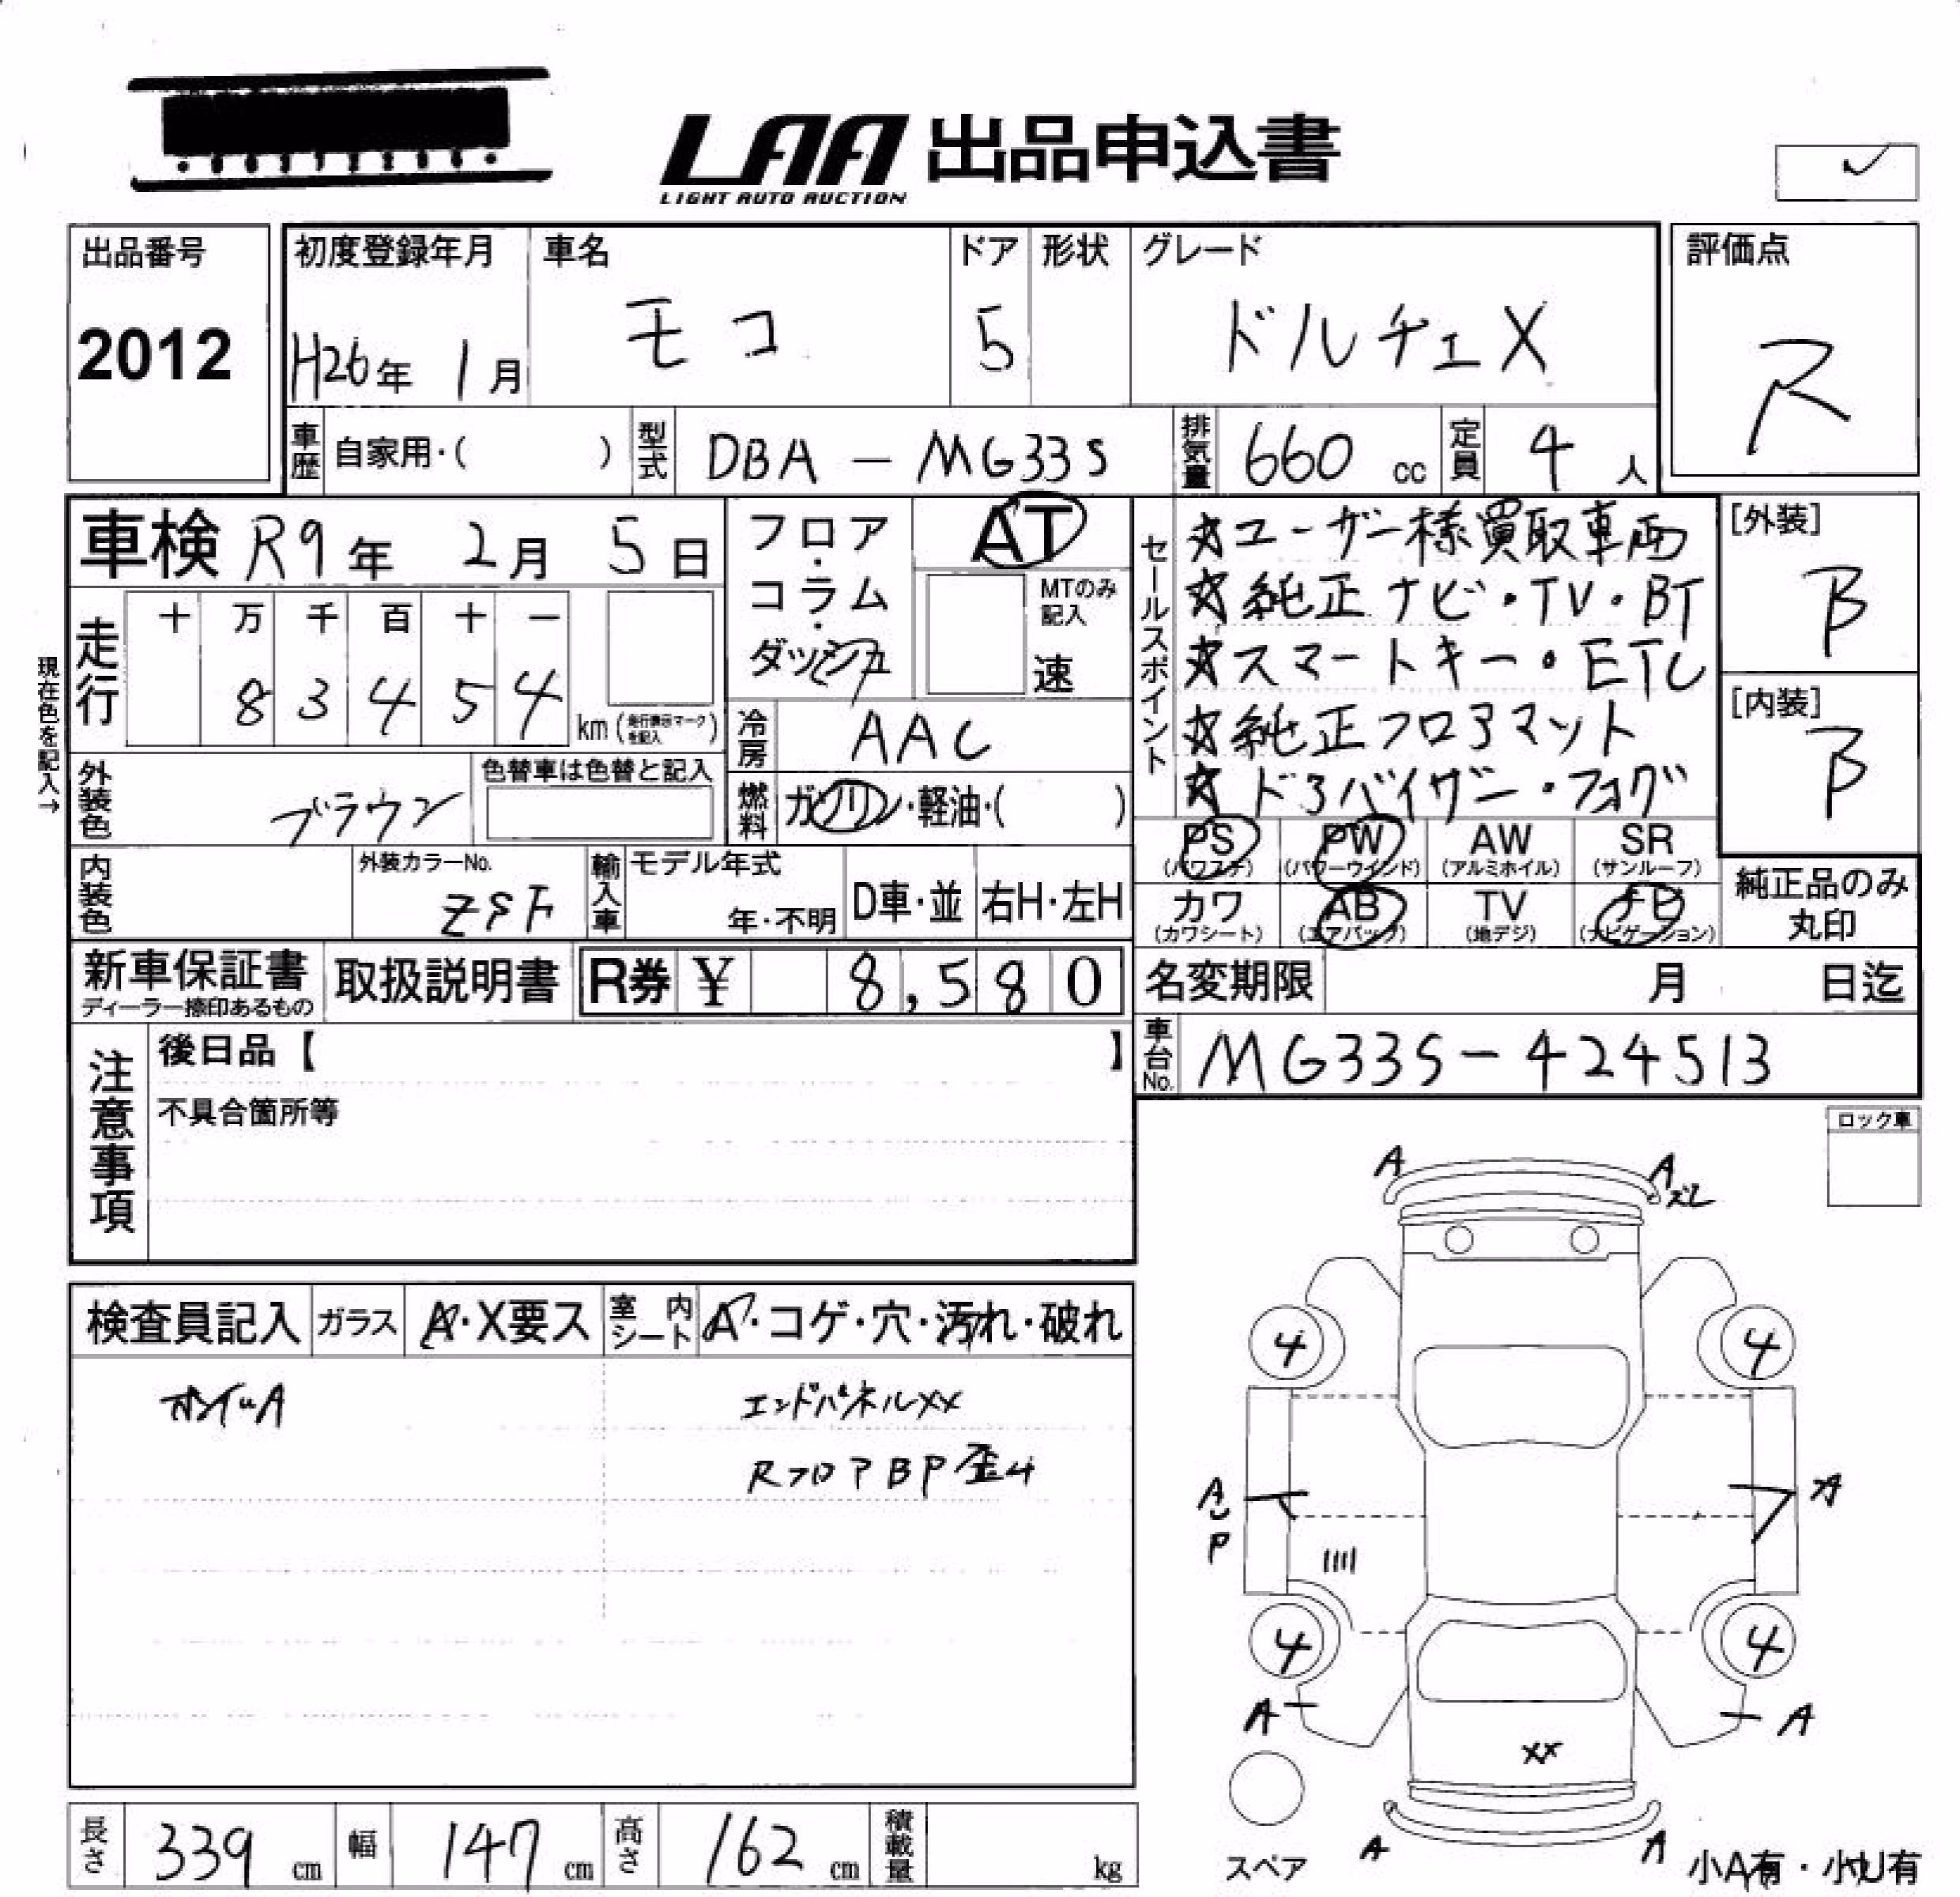 LAA 出品申込書
LIGHT AUTO AUCTION
出品番号
2012
初度登録年月
H26年 1月
車名
モコ
ドア
5
形状
グレード
ドルチェX
評価点
R
車歴 自家用・( )
型式 DBA - MG33S
排気量 660 cc
定員 4 人
車検 R9年 2月 5日
走行
十 万 千 百 十 一
8 3 4 5 4
km (走行表示マークを記入)
現在色を記入→
外装色 ブラウン
色替車は色替と記入
フロア・コラム・ダッシュ
AT
MTのみ記入
速
冷房 AAC
燃料 ガソリン・軽油・( )
セールスポイント
☆ユーザー様買取車両
☆純正ナビ・TV・BT
☆スマートキー・ETC
☆純正フロアマット
☆ドアバイザー・フォグ
[外装]
B
[内装]
B
PS (パワステ)
PW (パワーウインド)
AW (アルミホイル)
SR (サンルーフ)
カワ (カワシート)
AB (エアバック)
TV (地デジ)
ナビ (ナビゲーション)
純正品のみ
丸印
内装色
外装カラーNo.
ZSF
輸入車 モデル年式
年・不明
D車・並
右H・左H
新車保証書
ディーラー捺印あるもの
取扱説明書
R券 ¥ 8,580
名変期限 月 日迄
車台No. MG33S-424513
注意事項
後日品【 】
不具合箇所等
ロック車
検査員記入
ガラス A・X要ス
室内シート A・コゲ・穴・汚れ・破れ
エンドパネルXX
RフロアBP歪み
A
A
ズレ
4
4
A
P
A
4
4
A
A
XX
A
A
スペア
小A有・小U有
長さ 339 cm
幅 147 cm
高さ 162 cm
積載量 kg